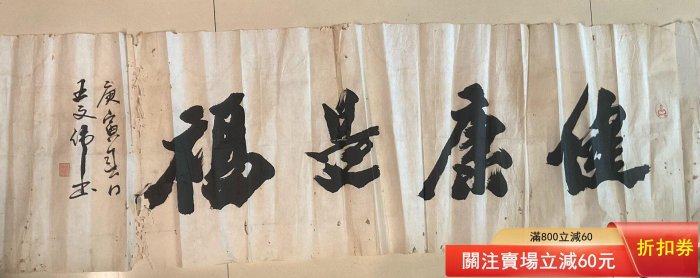 健康是福
庚寅春日
王文伟书
滿800立減60
關注賣場立減60元
折扣券